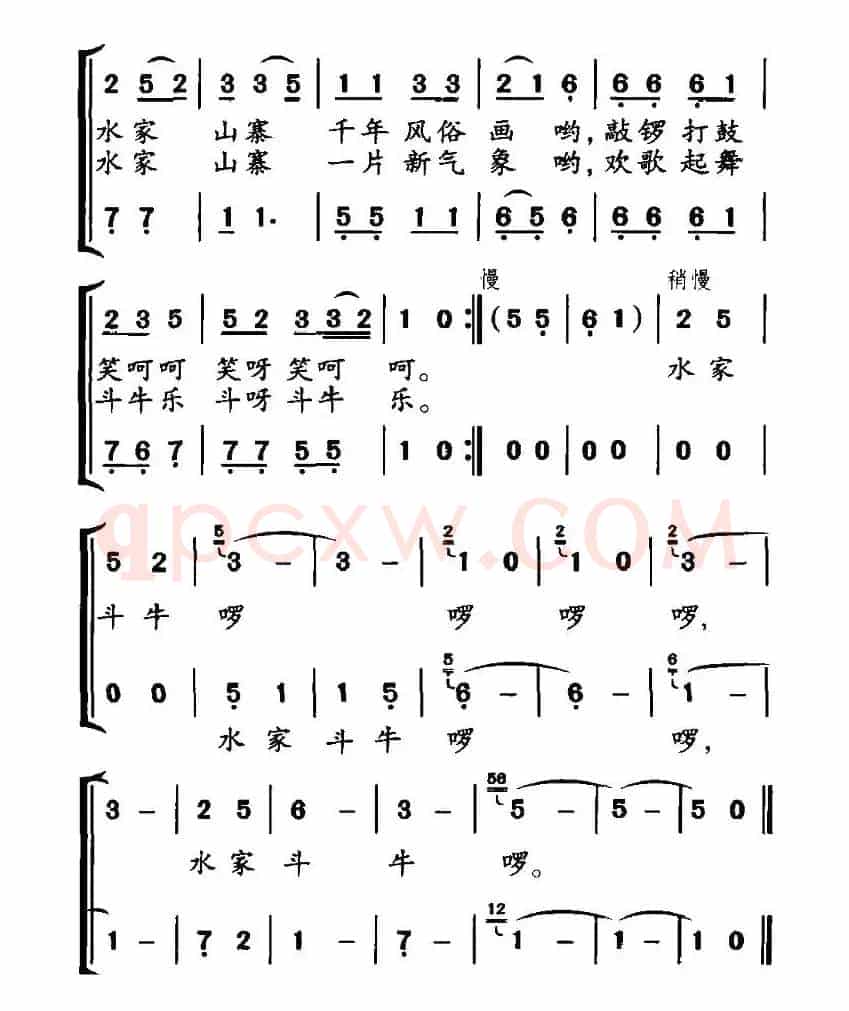 2 5 2 | 3 3 5 | 1 1 3 3 | 2 1 6 | 6 6 6 1 |
水家 山寨 千年风俗画 哟，敲锣打鼓
水家 山寨 一片新气象 哟，欢歌起舞
7 7 | 1 1. | 5 5 1 1 | 6 5 6 | 6 6 6 1 |
慢 稍慢
2 3 5 | 5 2 3 3 2 | 1 0 :‖ (5 5 | 6 1) | 2 5 |
笑呵呵 笑呀笑呵 呵。 水家
斗牛乐 斗呀斗牛 乐。
7 6 7 | 7 7 5 5 | 1 0 :‖ 0 0 | 0 0 | 0 0 |
qpcxw.COM
5 2 | 5 3 – | 3 – | 2 1 0 | 2 1 0 | 2 3 – |
斗牛 啰 啰 啰 啰，
0 0 | 5 1 | 1 5 | 5 6 – | 6 – | 6 1 – |
水家 斗牛 啰 啰，
3 – | 2 5 | 6 – | 3 – | 56 5 – | 5 – | 5 0 ‖
水家 斗 牛 啰。
1 – | 7 2 | 1 – | 7 – | 12 1 – | 1 – | 1 0 ‖